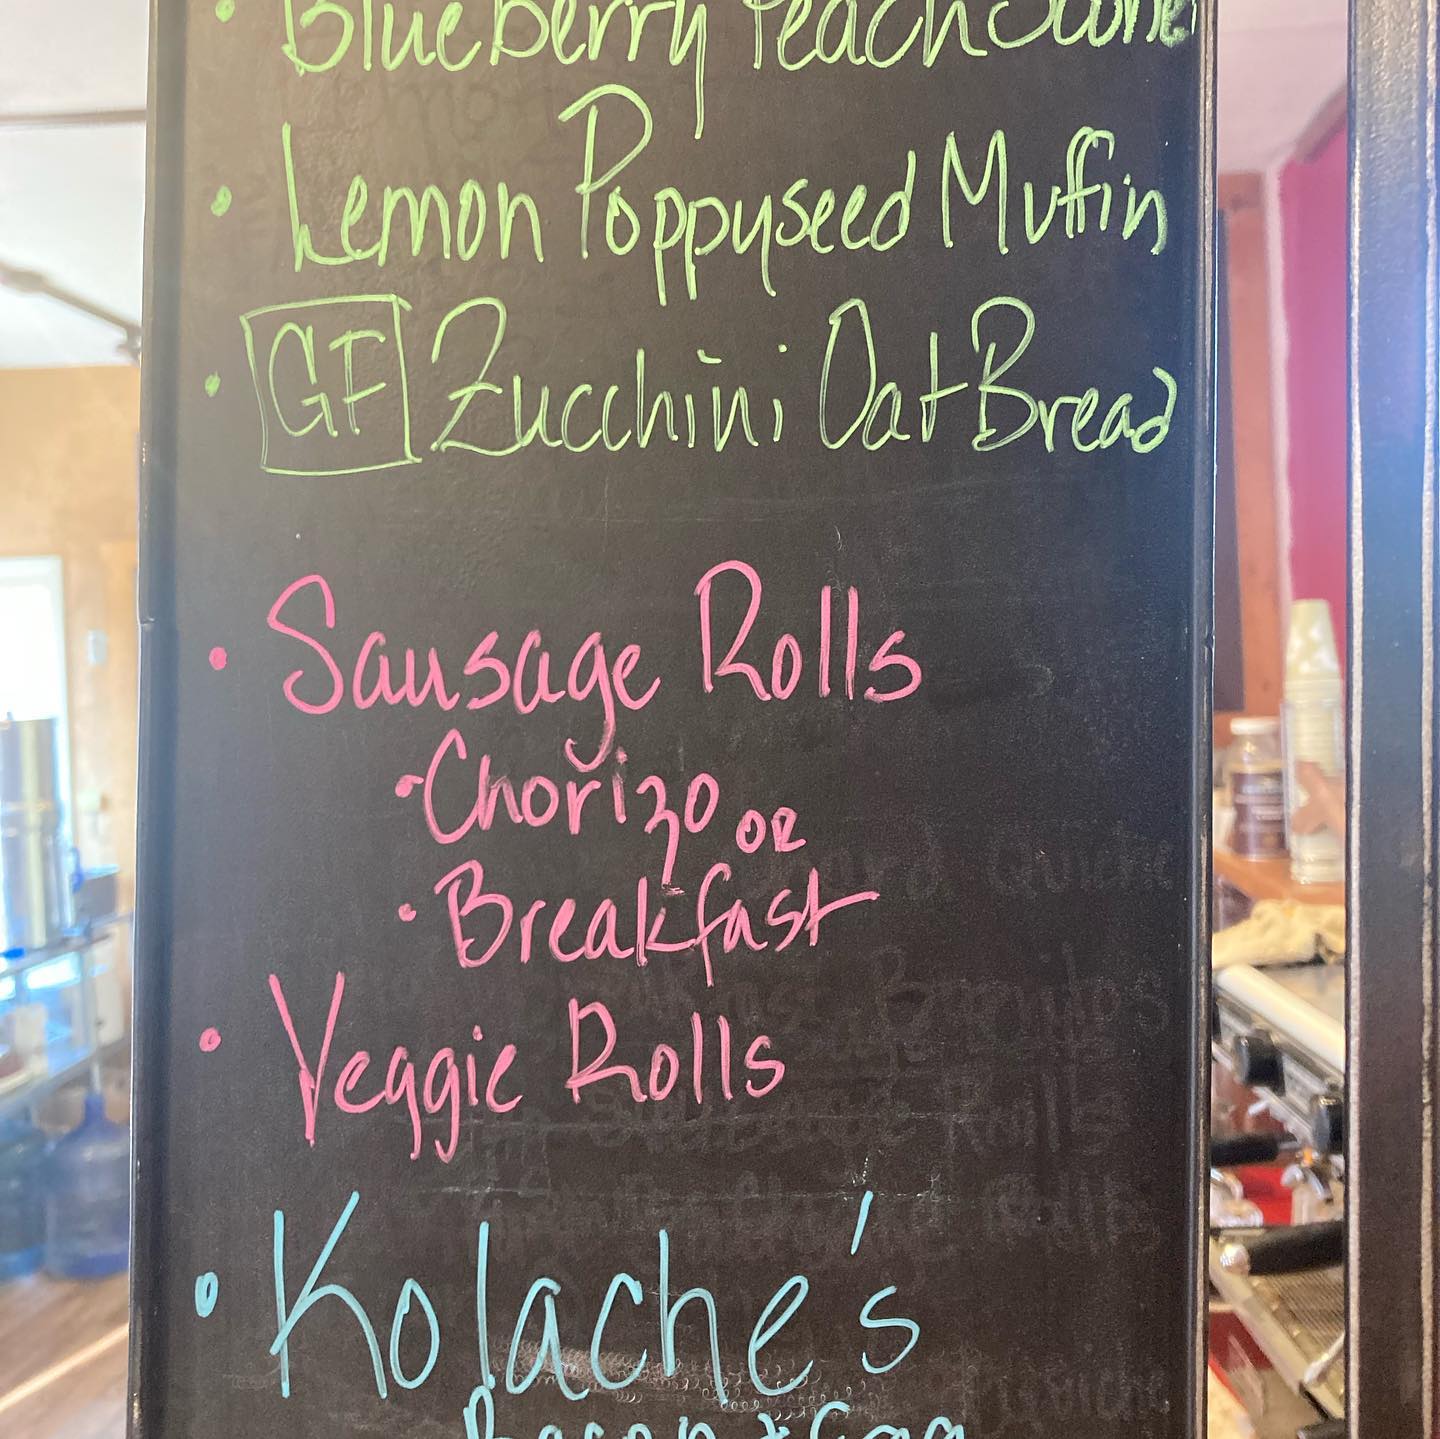 • Blueberry Peach Scone
• Lemon Poppyseed Muffin
• GF Zucchini Oat Bread
• Sausage Rolls
• Chorizo OR
• Breakfast
• Veggie Rolls
• Kolache's
Bacon + Egg